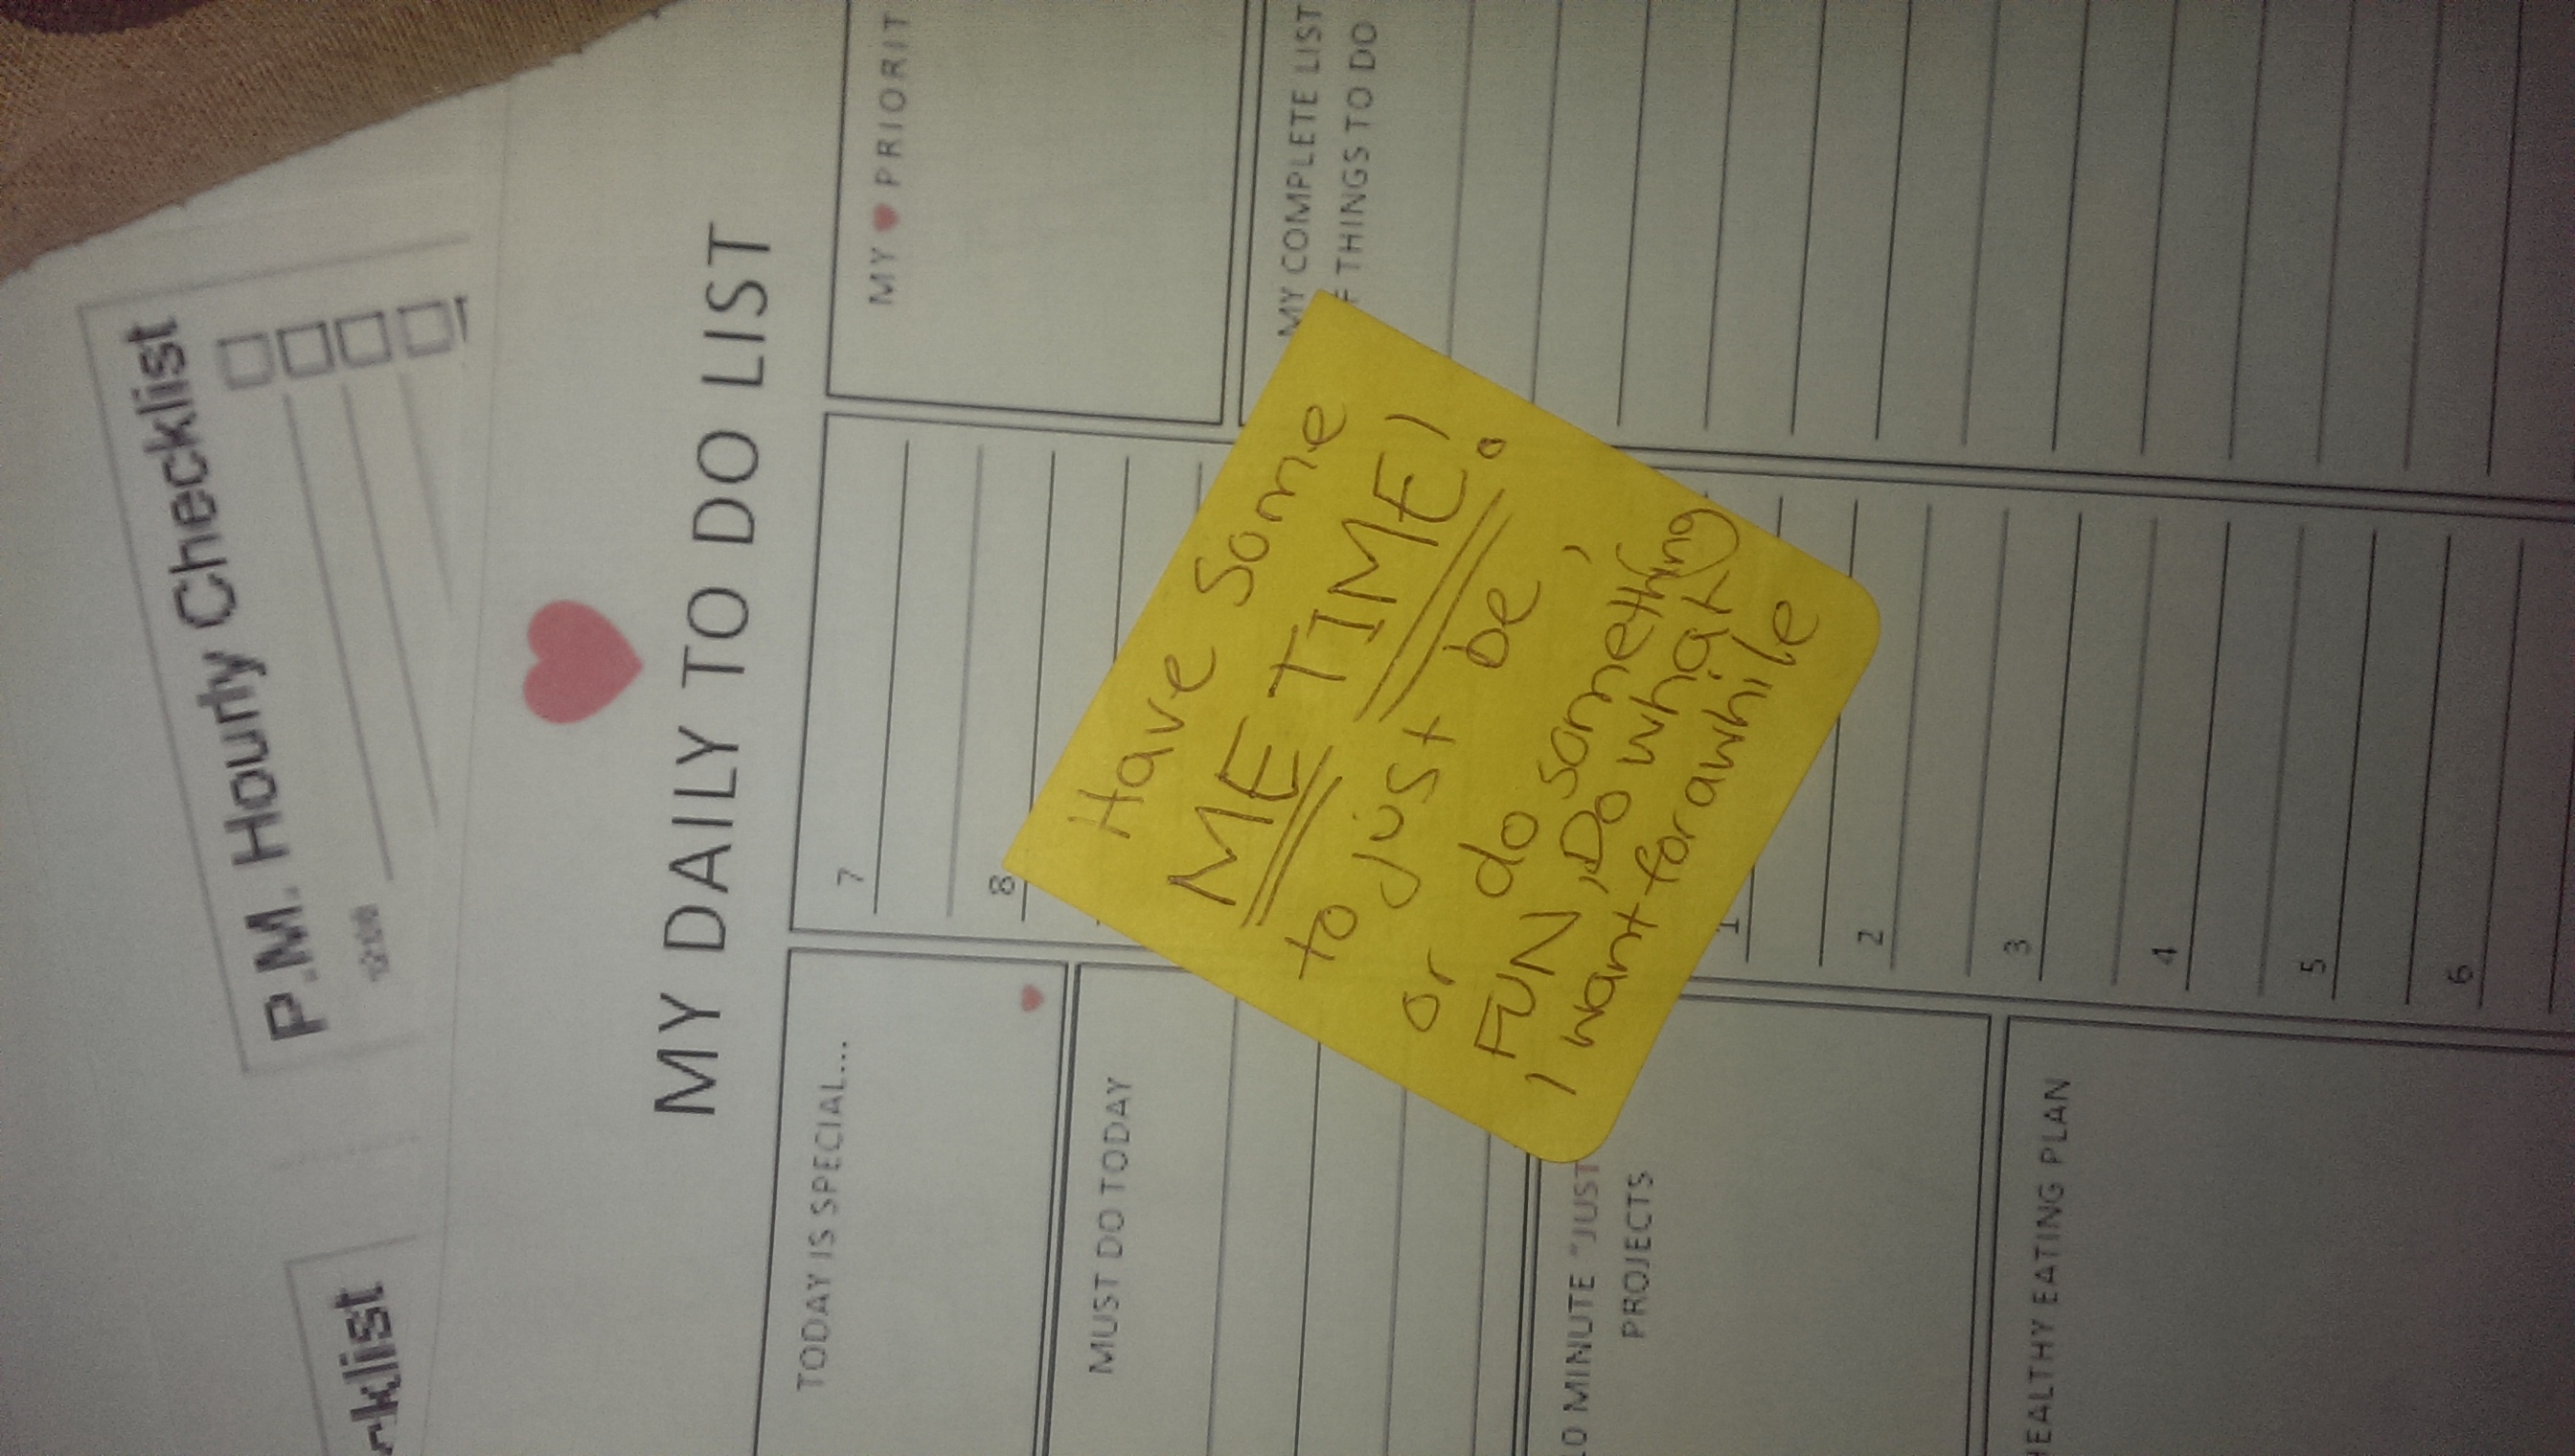 P.M. Hourly Checklist
12:00
MY DAILY TO DO LIST
TODAY IS SPECIAL...
MUST DO TODAY
10 MINUTE "JUST
PROJECTS
HEALTHY EATING PLAN
7
8
1
2
3
4
5
6
MY ♥ PRIORIT
MY COMPLETE LIST
F THINGS TO DO
Have some
ME TIME!
to just be,
or do something
FUN, Do what
I want for awhile